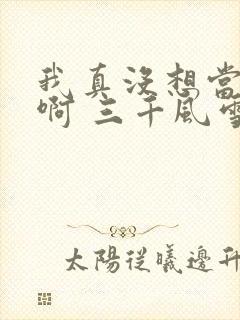 我真沒想當
啊 三千風雪
太陽從曦邊升